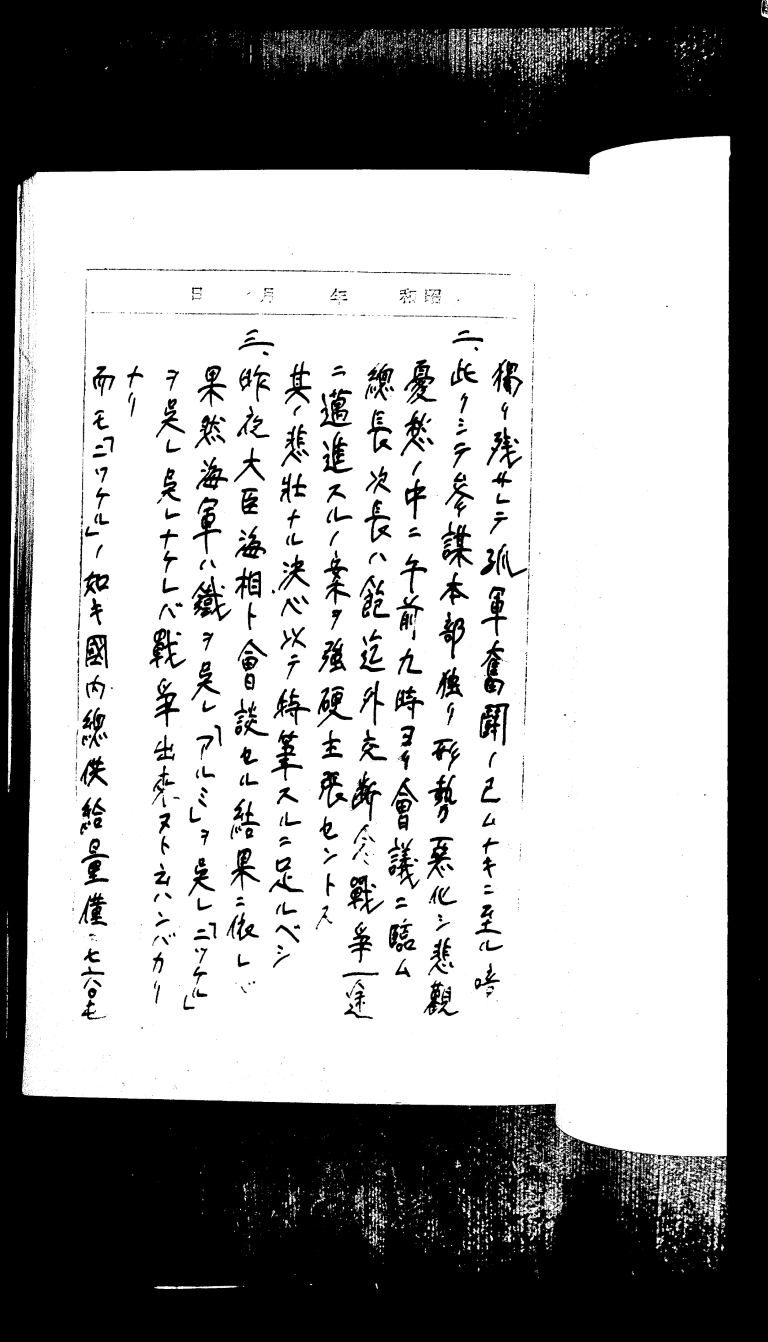 昭和　年　月　日
獨リ残サレテ孤軍奮闘ノ已ムナキニ至ル嗚
二、此クシテ參謀本部独リ形勢悪化シ悲觀
憂愁ノ中ニ午前九時ヨリ會議ニ臨ム
總長次長ハ飽迄外交断念戰爭一途
ニ邁進スルノ案ヲ強硬主張セントス
其ノ悲壮ナル決心以テ特筆スルニ足ルベシ
三、昨夜大臣海相ト會談セル結果ニ依レバ
果然海軍ハ鐵ヲ呉レ「アルミ」ヲ呉レ「ニッケル」
ヲ呉レ呉レナケレバ戰爭出來ヌト云ハンバカリ
ナリ
而モ「ニッケル」ノ如キ國内總供給量僅ニ七六〇屯